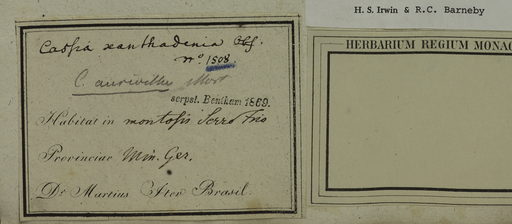 H. S. Irwin & R.C. Barneby
HERBARIUM REGIUM MONAC
Cassia xanthadenia
nº 1508.
C. aurivilla Mart
scrpst. Bentham 1869.
Habitat in montosis Serro frio
Provinciae Min. Ger.
Dr Martius Iter Brasil.